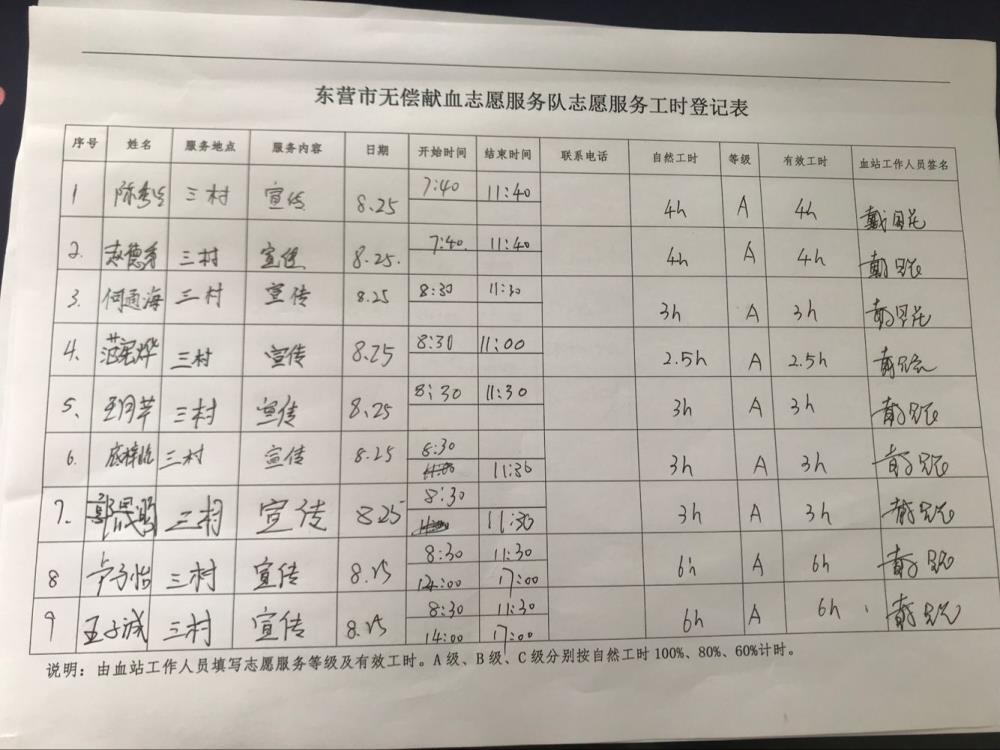 东营市无偿献血志愿服务队志愿服务工时登记表
序号 姓名 服务地点 服务内容 日期 开始时间 结束时间 联系电话 自然工时 等级 有效工时 血站工作人员签名
1 三村 宣传 8.25 7:40 11:40 4h A 4h
2. 赵德 三村 宣传 8.25. 7:40. 11:40 4h A 4h
3. 何通海 三村 宣传 8.25 8:30 11:30 3h A 3h
4. 范宪烨 三村 宣传 8.25 8:30 11:00 2.5h A 2.5h
5、 王月芊 三村 宣传 8.25 8:30 11:30 3h A 3h
6. 三村 宣传 8.25 8:30 3h A 3h
11:30
7. 郭 三村 宣传 8.25 8:30 3h A 3h
11:30
8 卢子怡 三村 宣传 8.25 8:30 11:30 6h A 6h
14:00 17:00
9 王子诚 三村 宣传 8.25 8:30 11:30 6h A 6h
14:00 17:00
说明：由血站工作人员填写志愿服务等级及有效工时。A 级、B 级、C 级分别按自然工时 100%、80%、60%计时。